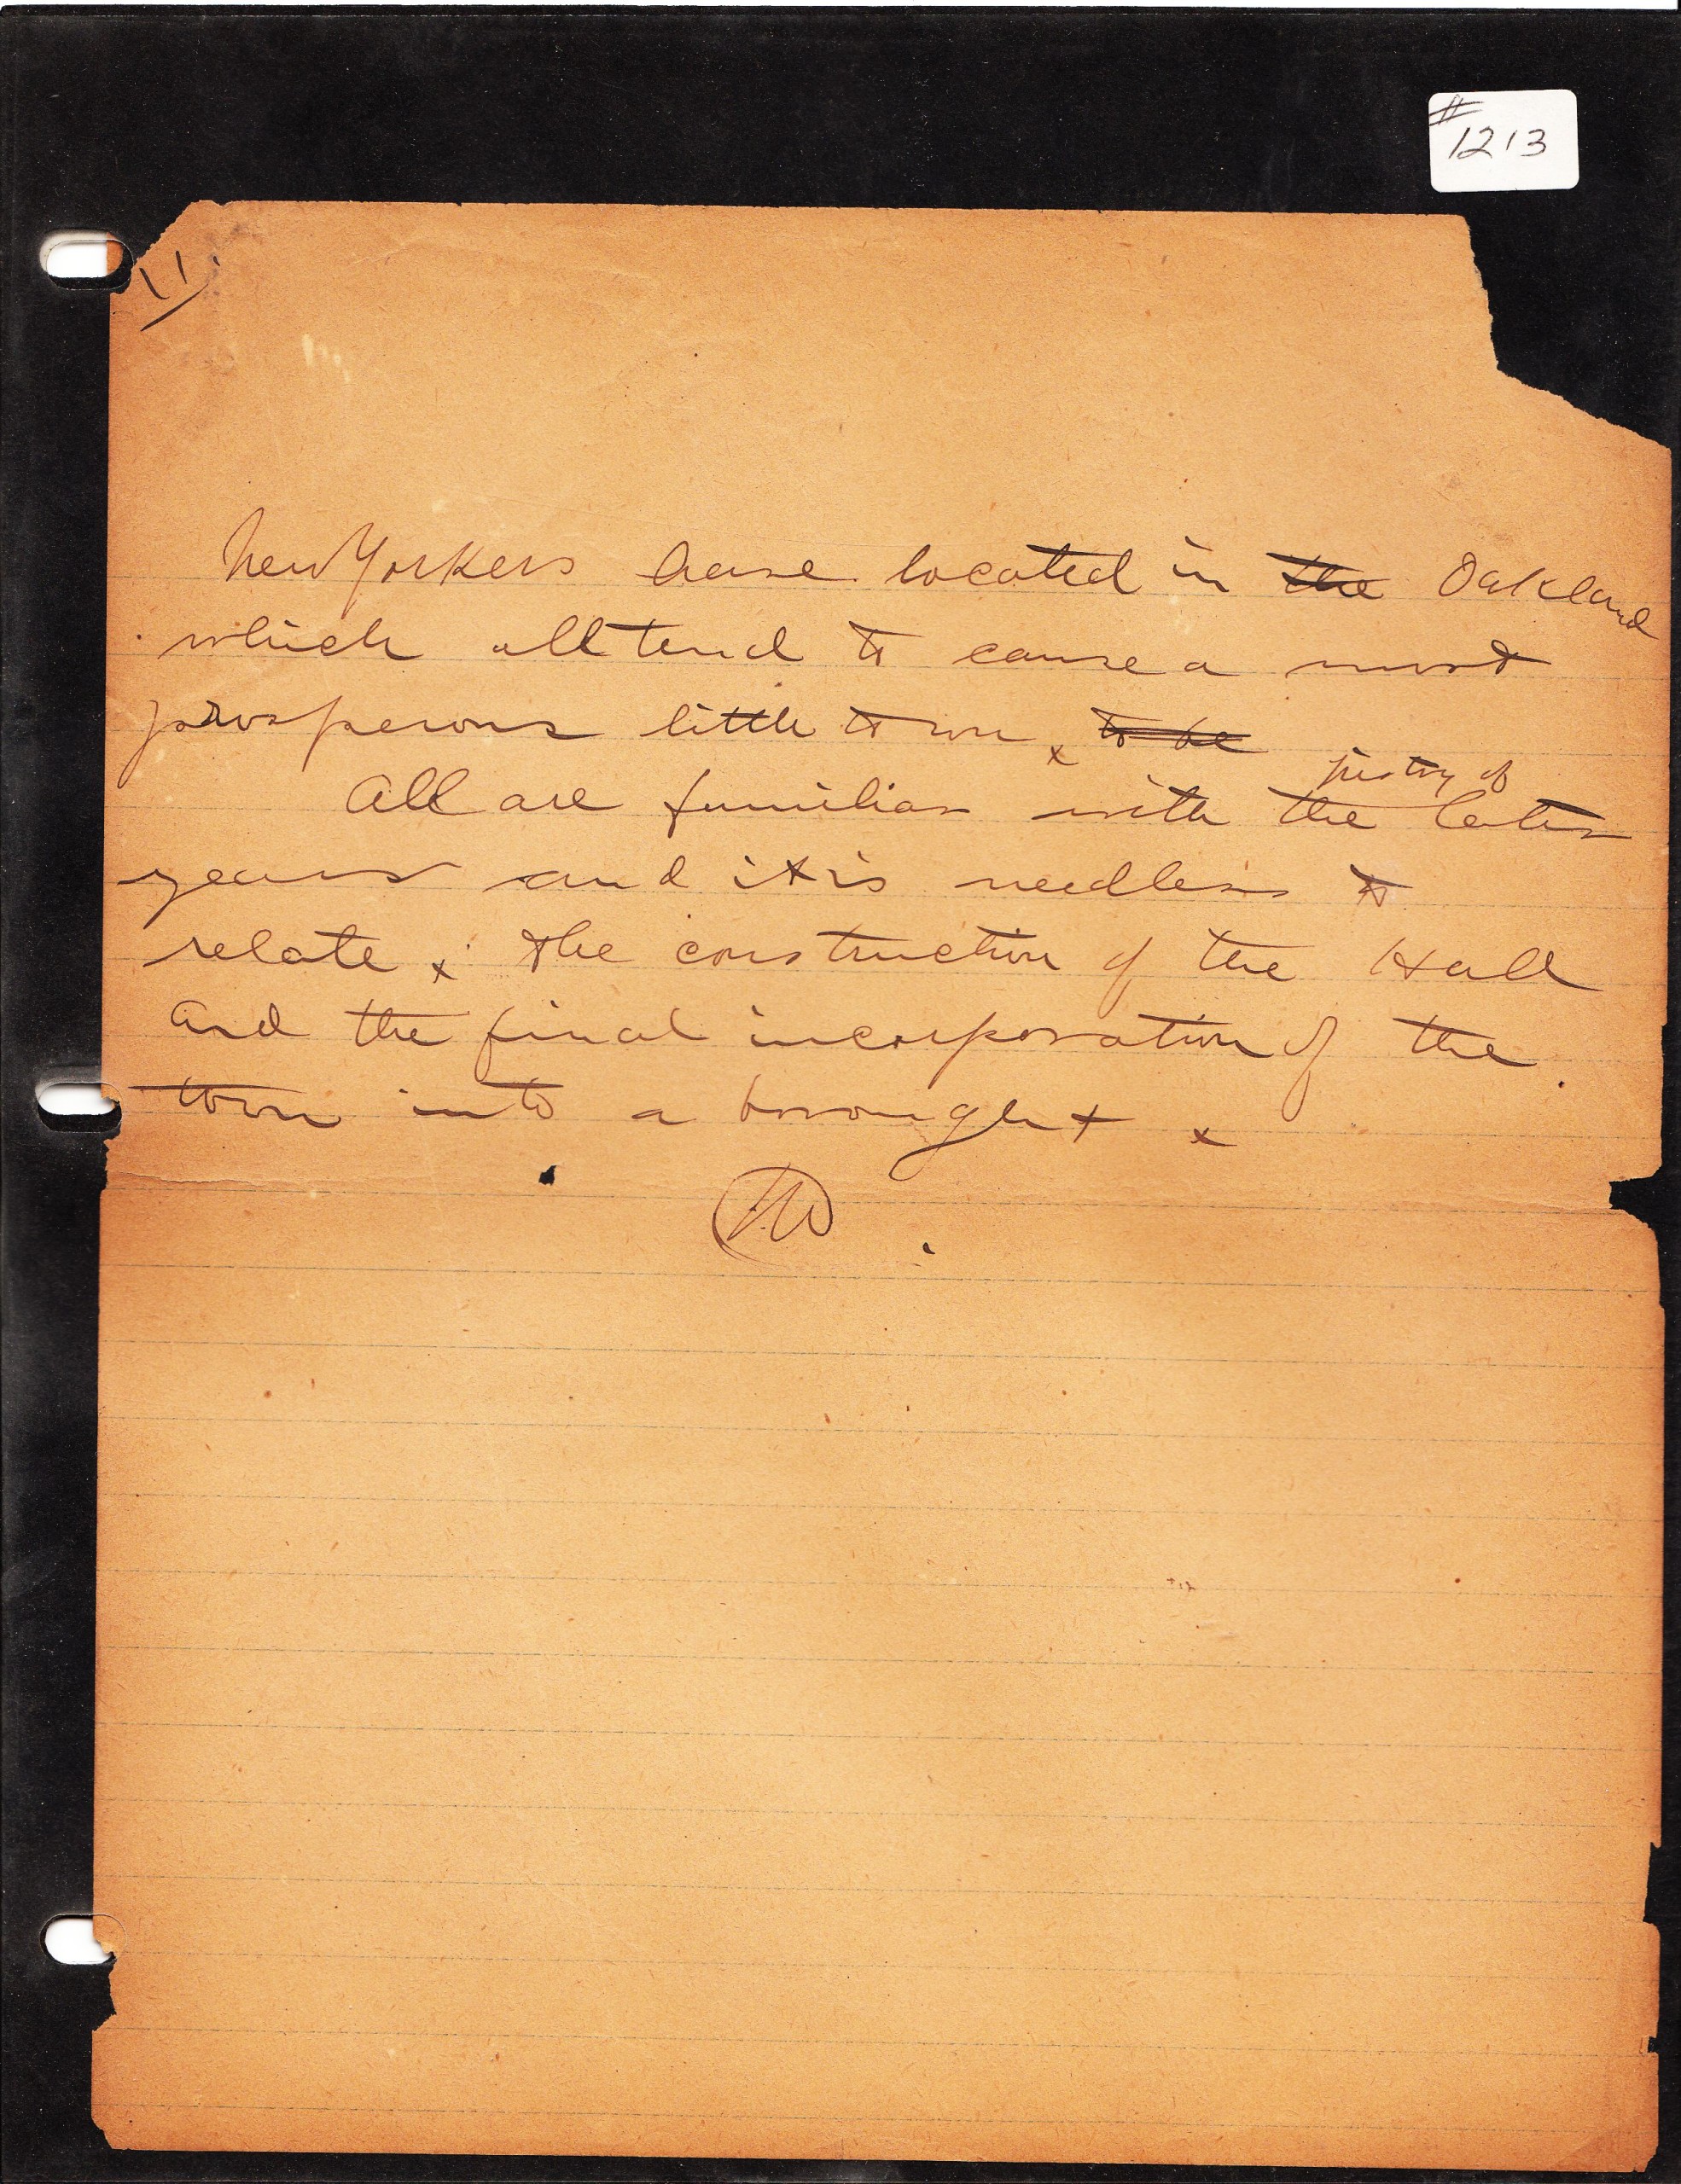 # 1213
11.
New Yorkers have located in the Oakland
which all tend to cause a most
prosperous little town x to be
history of
All are familiar with the later
years and it is needless to
relate x the construction of the Hall
and the final incorporation of the
town into a borought x